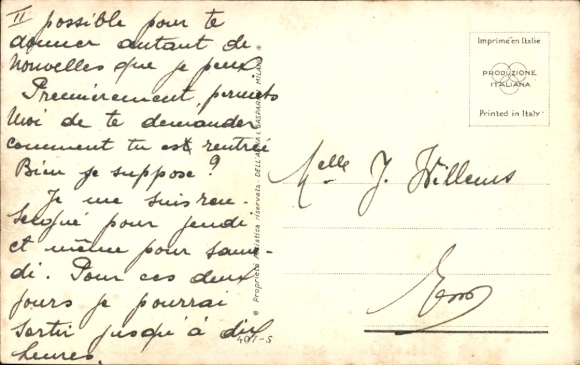 II possible pour te
donner autant de
nouvelles que je peux.
Premièrement, permets
moi de te demander
comment tu es rentrée
Bien je suppose ?
Je me suis ren-
seigné pour jeudi
et même pour same-
di. Pour ces deux
jours je pourrai
sortir jusqu'à dix
heures.
© Proprietà Artistica riservata DELL'ANNA & GASPARINI MILANO ®
407-5
Imprimé en Italie
PRODUZIONE
ITALIANA
Printed in Italy
Melle J. Willems